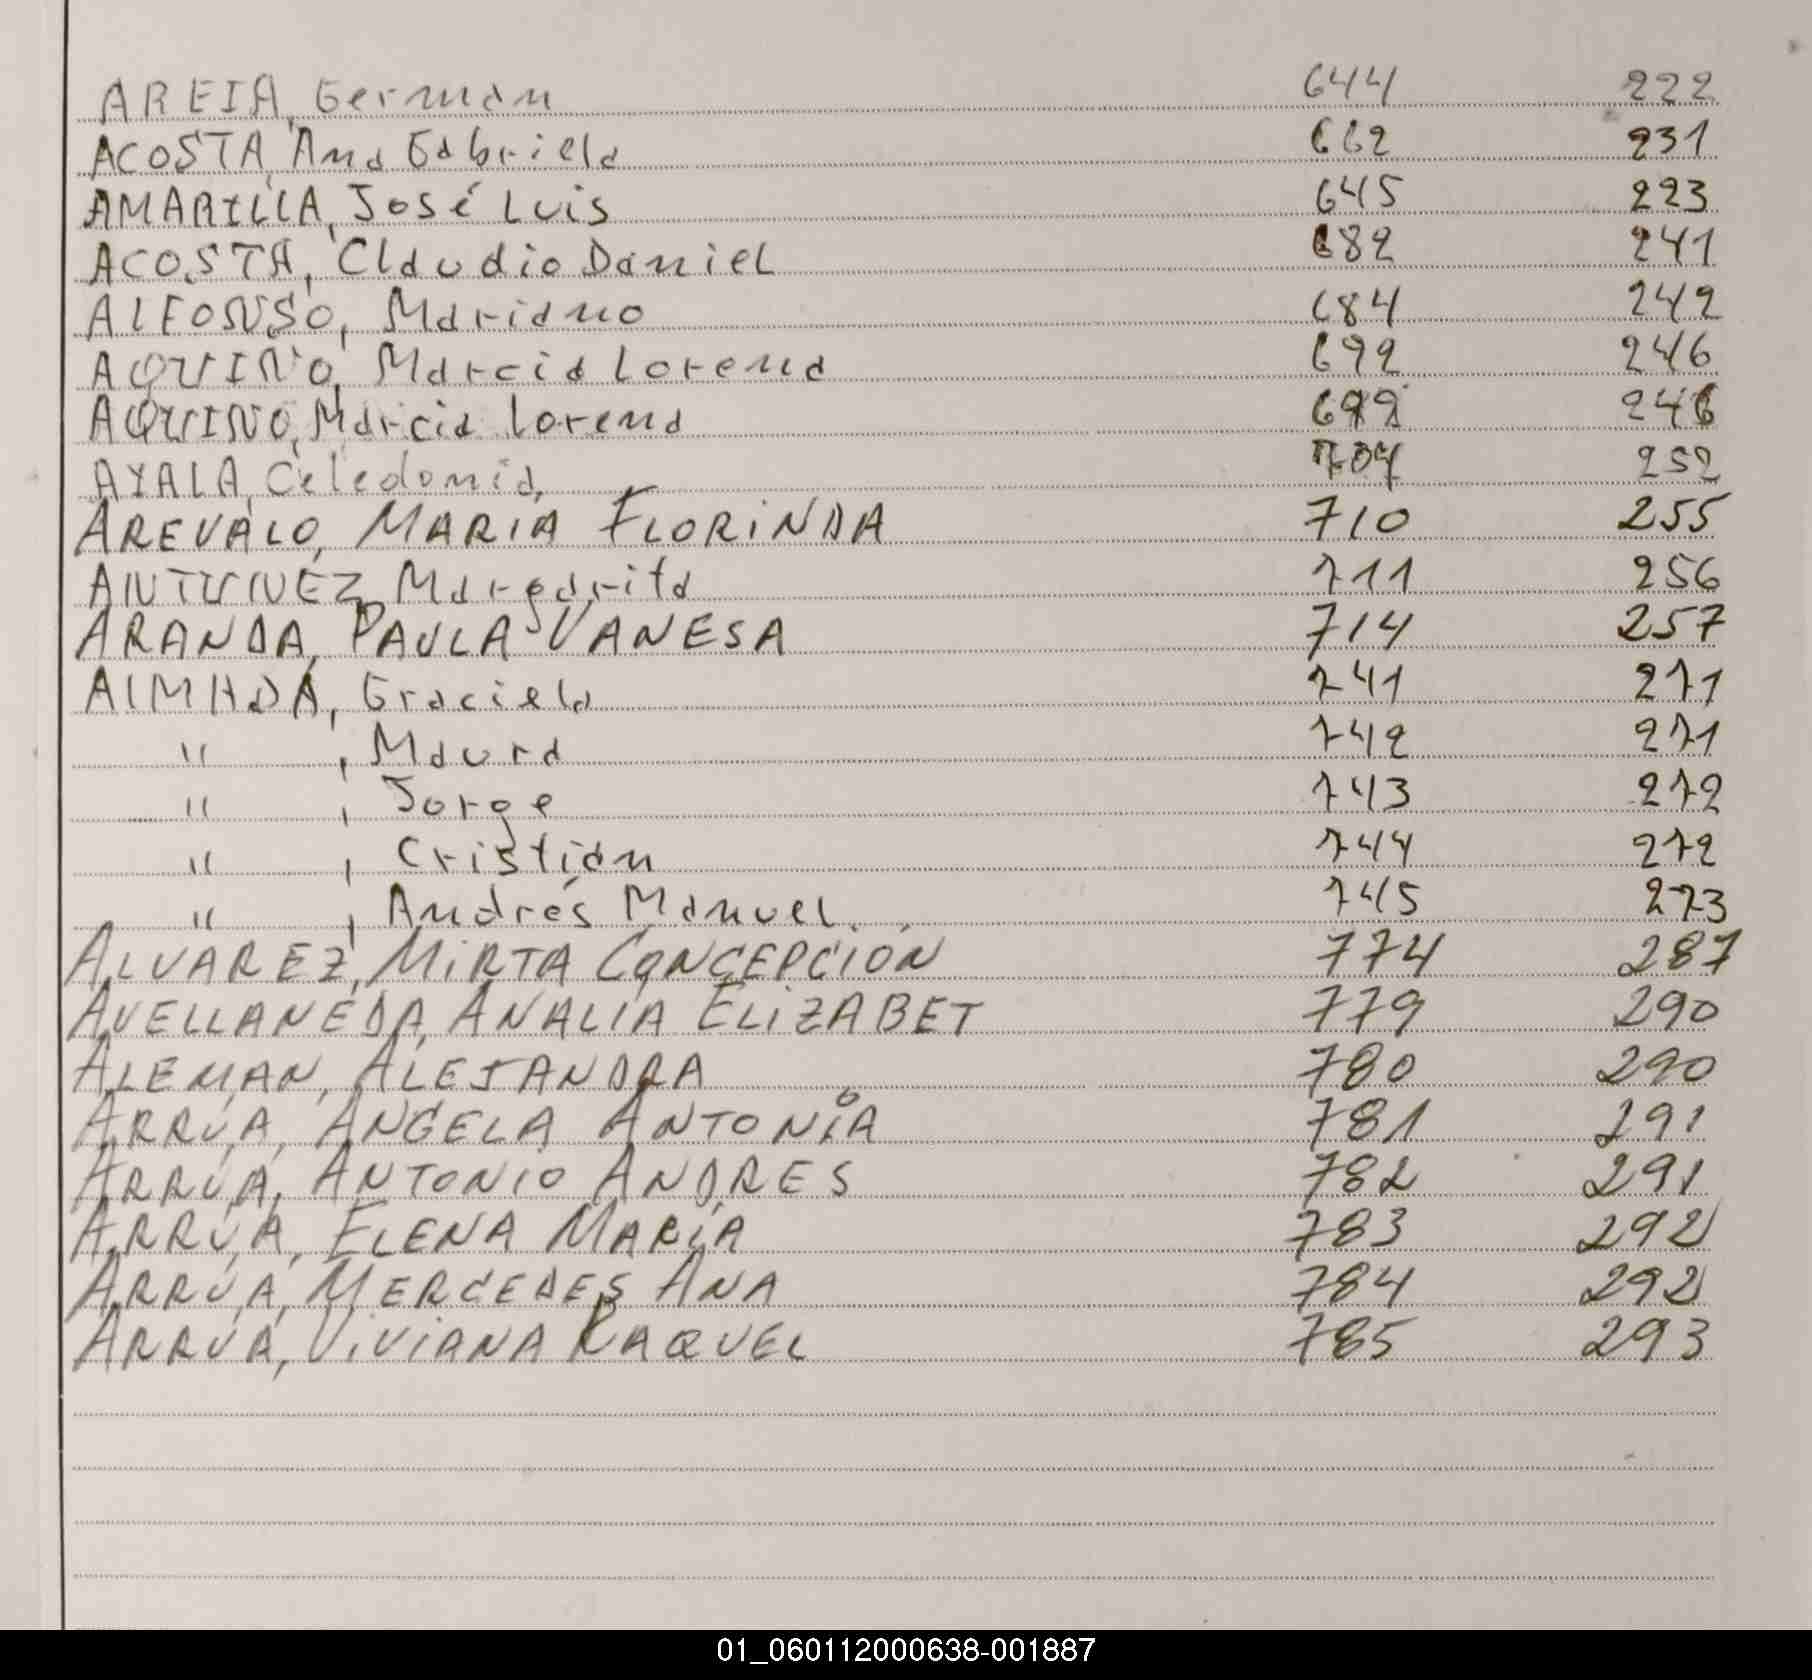 AREIA, German 644 222
ACOSTA, Ana Gabriela 662 231
AMARILLA, José Luis 645 223
ACOSTA, Claudio Daniel 682 241
ALFONSO, Mariano 684 242
AQUINO, Marcia Lorena 692 246
AQUINO, Marcia Lorena 692 246
AYALA, Celedonia, 704 252
AREVALO, MARIA FLORINDA 710 255
ANTUNEZ, Margarita 711 256
ARANDA, PAULA VANESA 714 257
ALMADA, Graciela 741 271
" , Maura 742 271
" , Jorge 743 272
" , Cristian 744 272
" , Andrés Manuel 745 273
ALVAREZ, MIRTA CONCEPCIÓN 774 287
AVELLANEDA, ANALIA ELIZABET 779 290
ALEMAN, ALEJANDRA 780 290
ARRÚA, ANGELA ANTONIA 781 291
ARRÚA, ANTONIO ANDRES 782 291
ARRÚA, ELENA MARÍA 783 292
ARRÚA, MERCEDES ANA 784 292
ARRÚA, VIVIANA RAQUEL 785 293
01_060112000638-001887